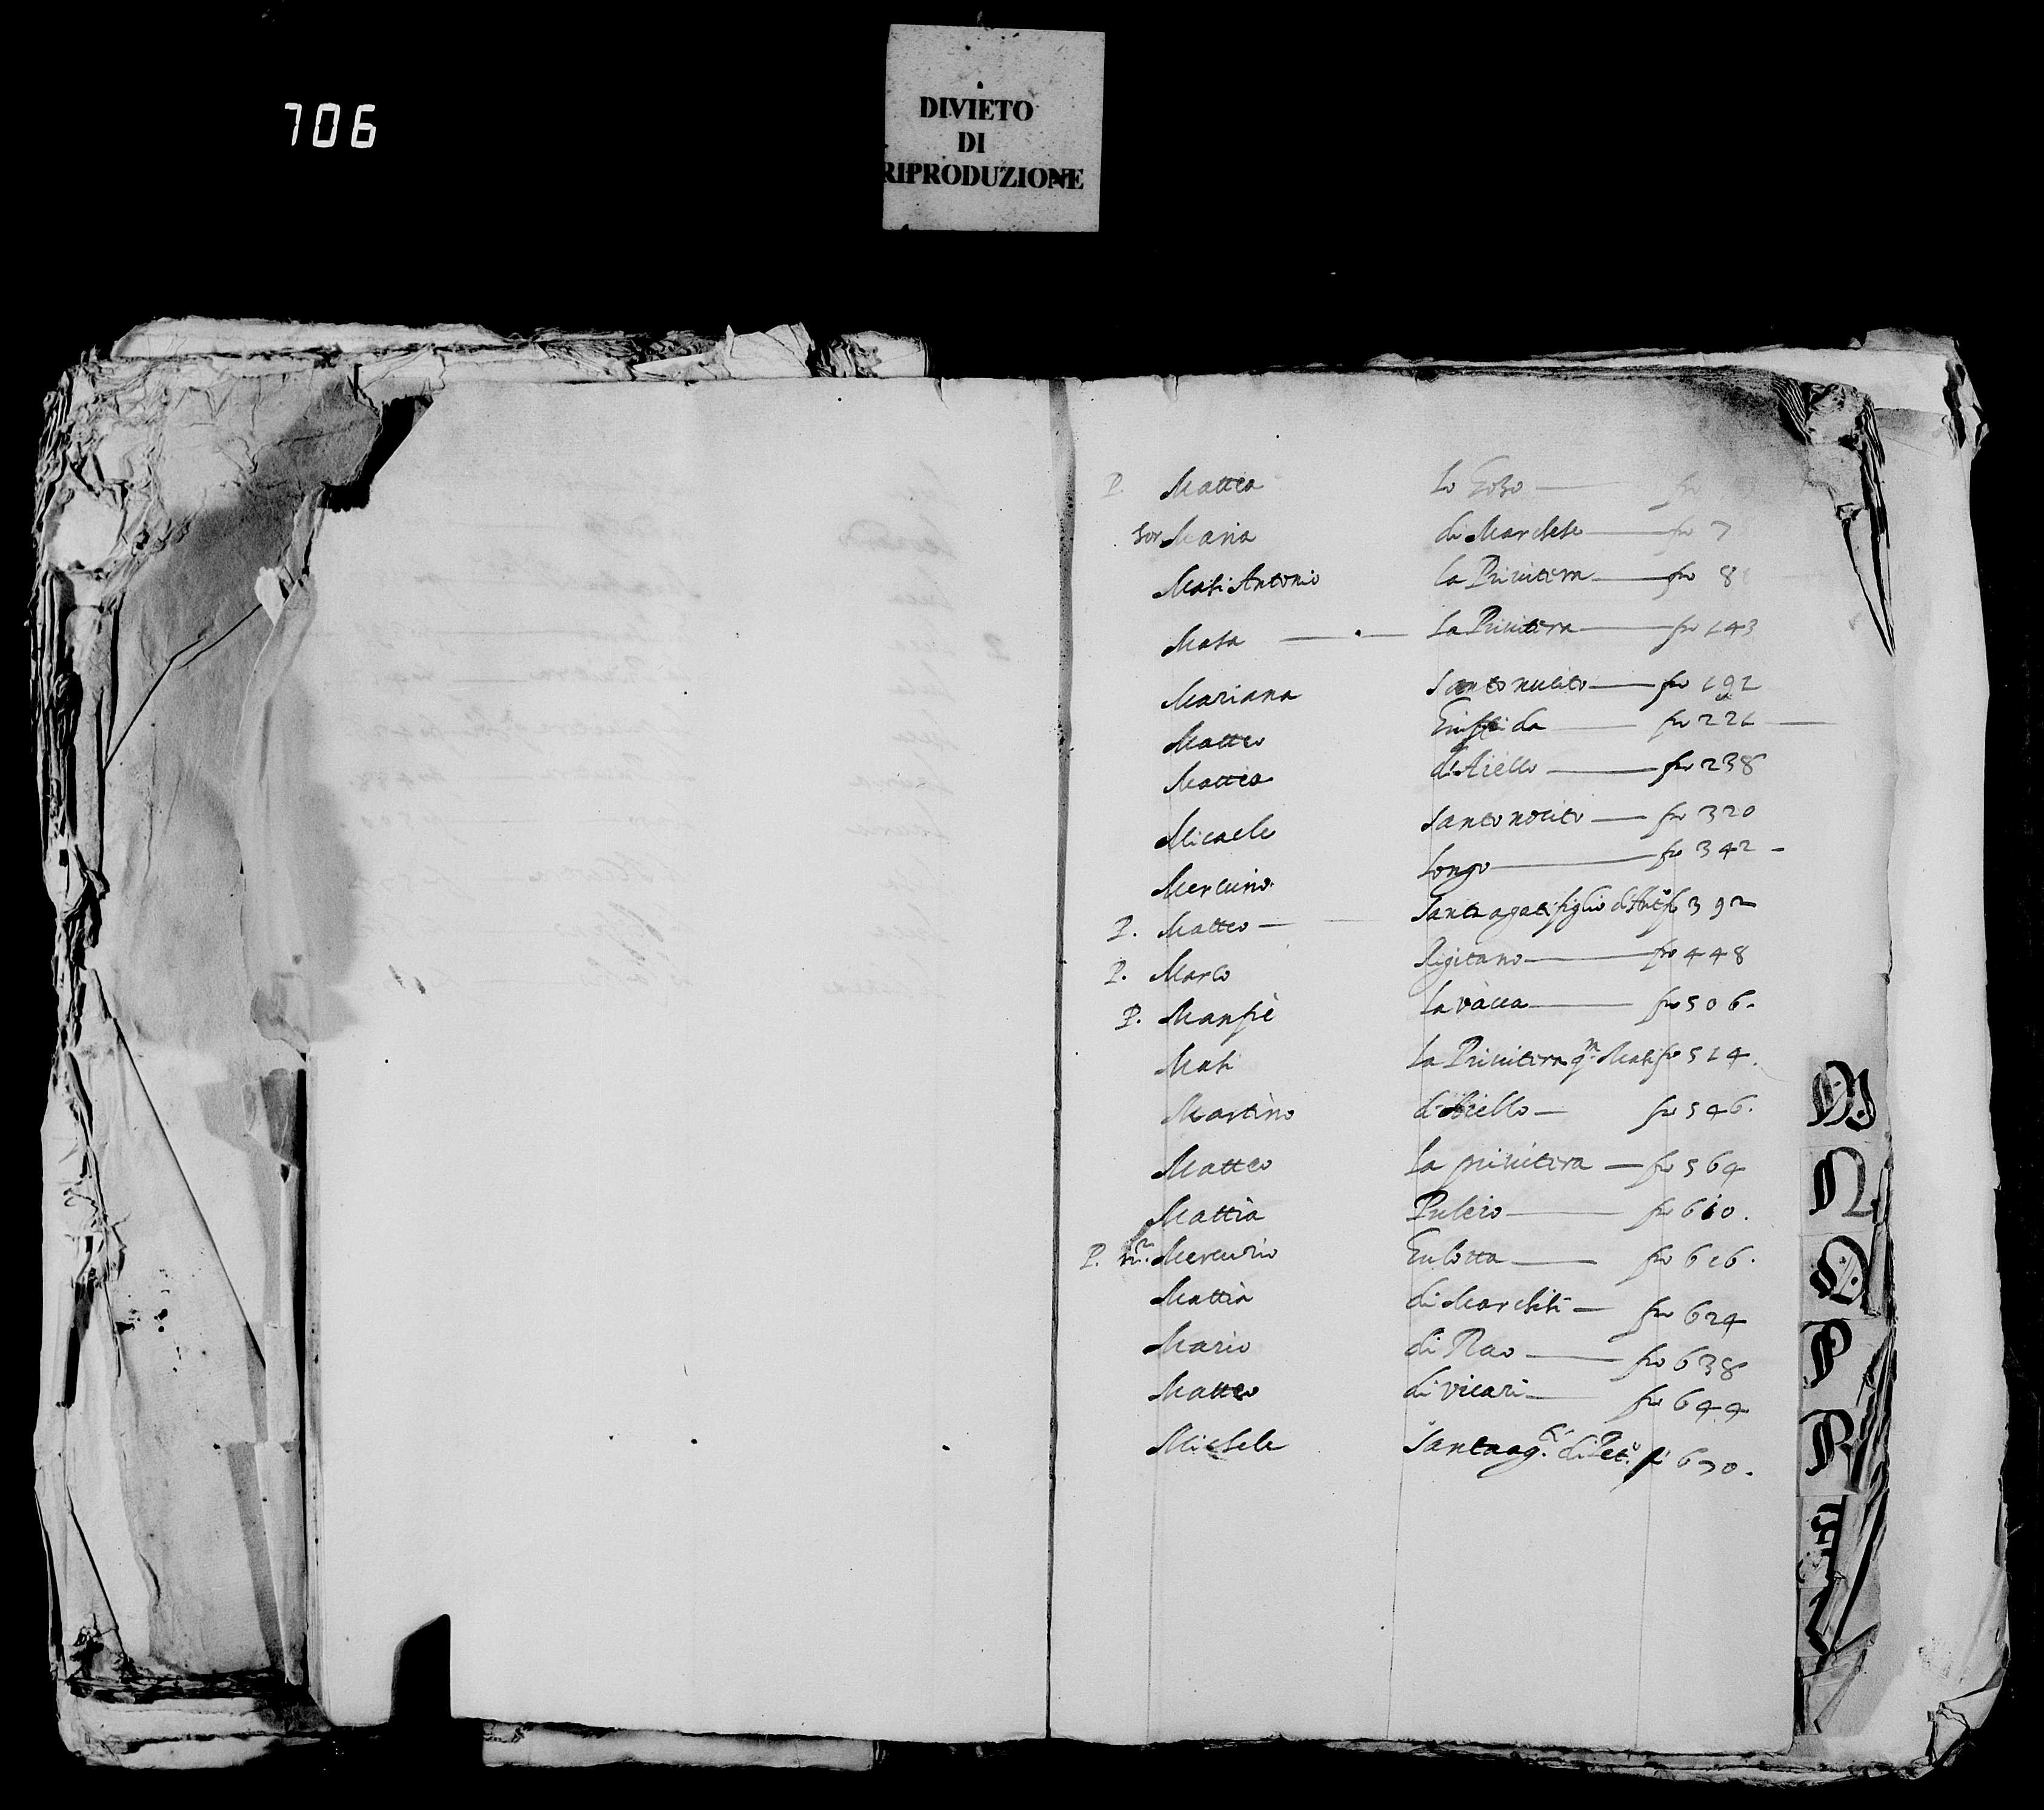 706
DIVIETO
DI
RIPRODUZIONE
P. Matteo Lo fo
Sor Maria di Marchese fo 7
Masi Antonio la Privitera fo 8
Masa La Privitera fo 143
Mariana Santonucito fo 191
Matteo Giuffrida fo 221
Matteo d'Aiello fo 238
Micaele Santonocito fo 320
Mercurio Longo fo 342
P. Matteo Santagati figlio di fo 392
P. Marco Rigitano fo 448
P. Manfrè la vacca fo 506.
Masi la Privitera qm Masi fo 514.
Martino d'Aiello fo 546.
Matteo la privitera fo 564
Mattia Puleio fo 610.
P. Mercurio Gulotta fo 616.
Mattia di Marchisi fo 624
Mario di Rao fo 638
Matteo di vicari fo 644
Michele Santaag. di fo 670.
M
N
O
P
R